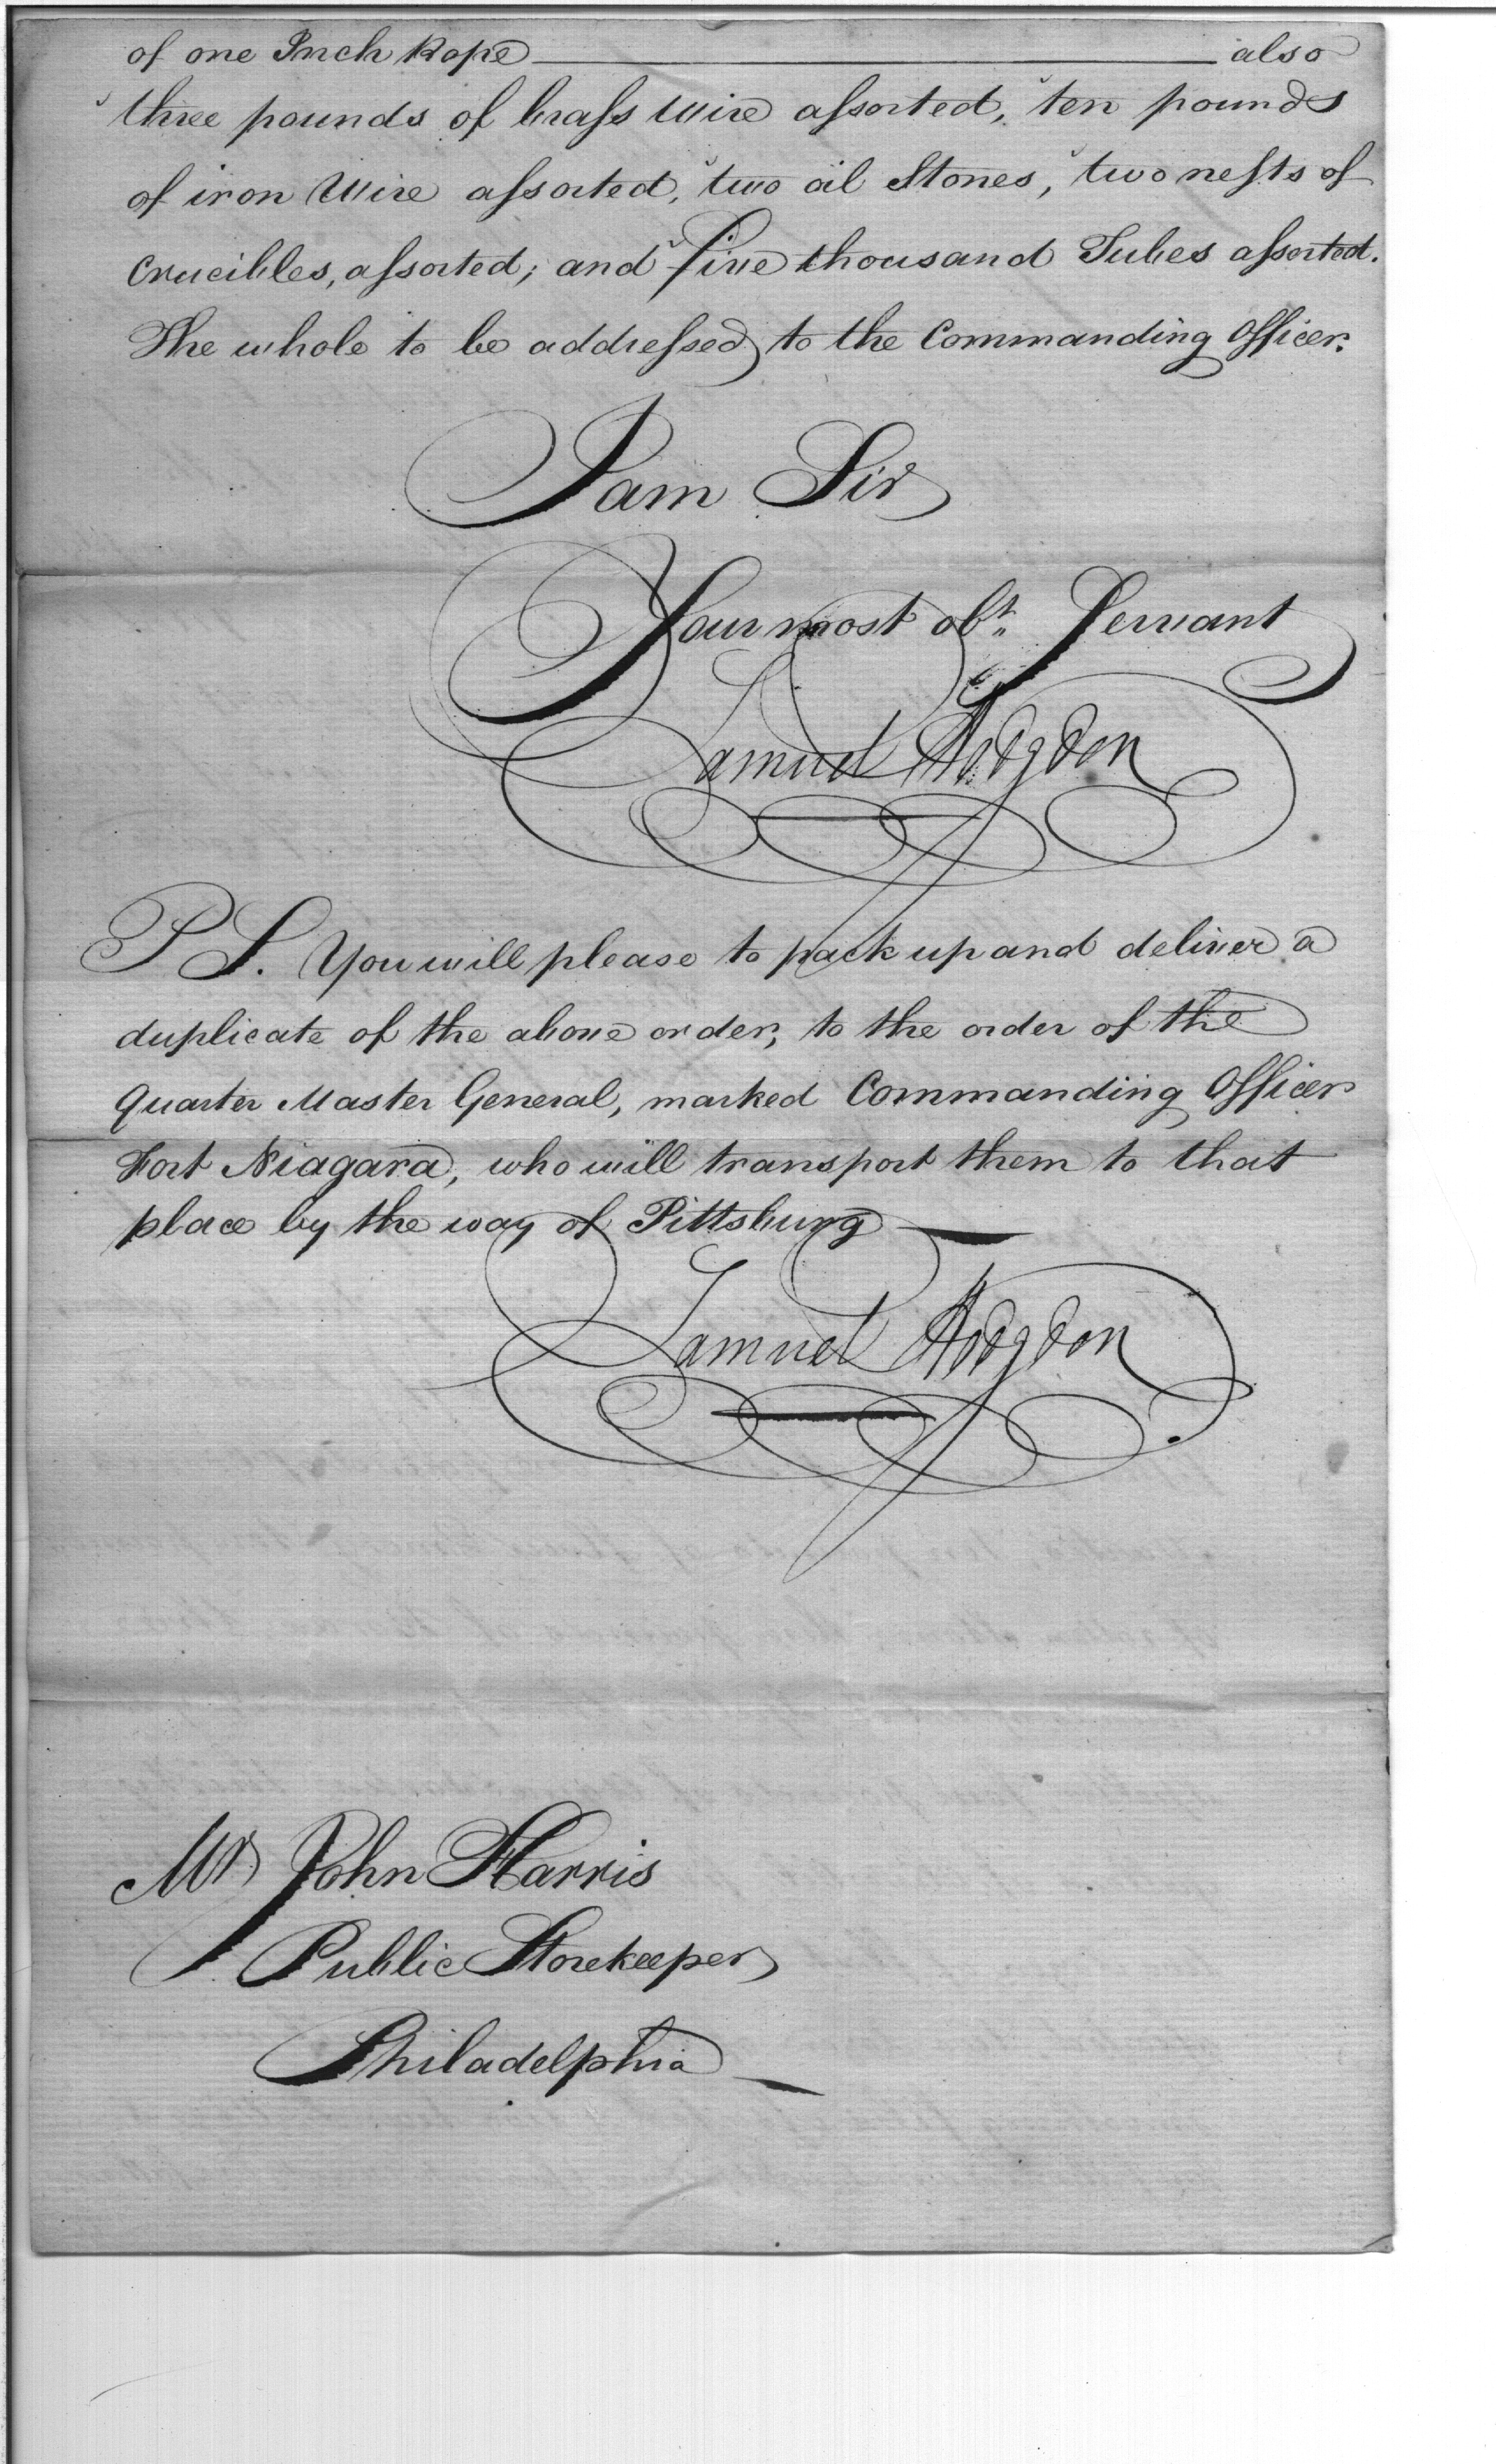 of one Inch Rope ——— also
three pounds of brass Wire assorted, ten pounds
of iron Wire assorted, two oil Stones, two nests of
Crucibles, assorted; and five thousand Tubes assorted.
The whole to be addressed to the Commanding Officer.
I am Sir
Your most obt. Servant
Samuel Hodgdon
PS. You will please to pack up and deliver a
duplicate of the above order, to the order of the
Quarter Master General, marked Commanding Officer
Fort Niagara, who will transport them to that
place by the way of Pittsburg —
Samuel Hodgdon
Mr John Harris
Public Storekeeper
Philadelphia —